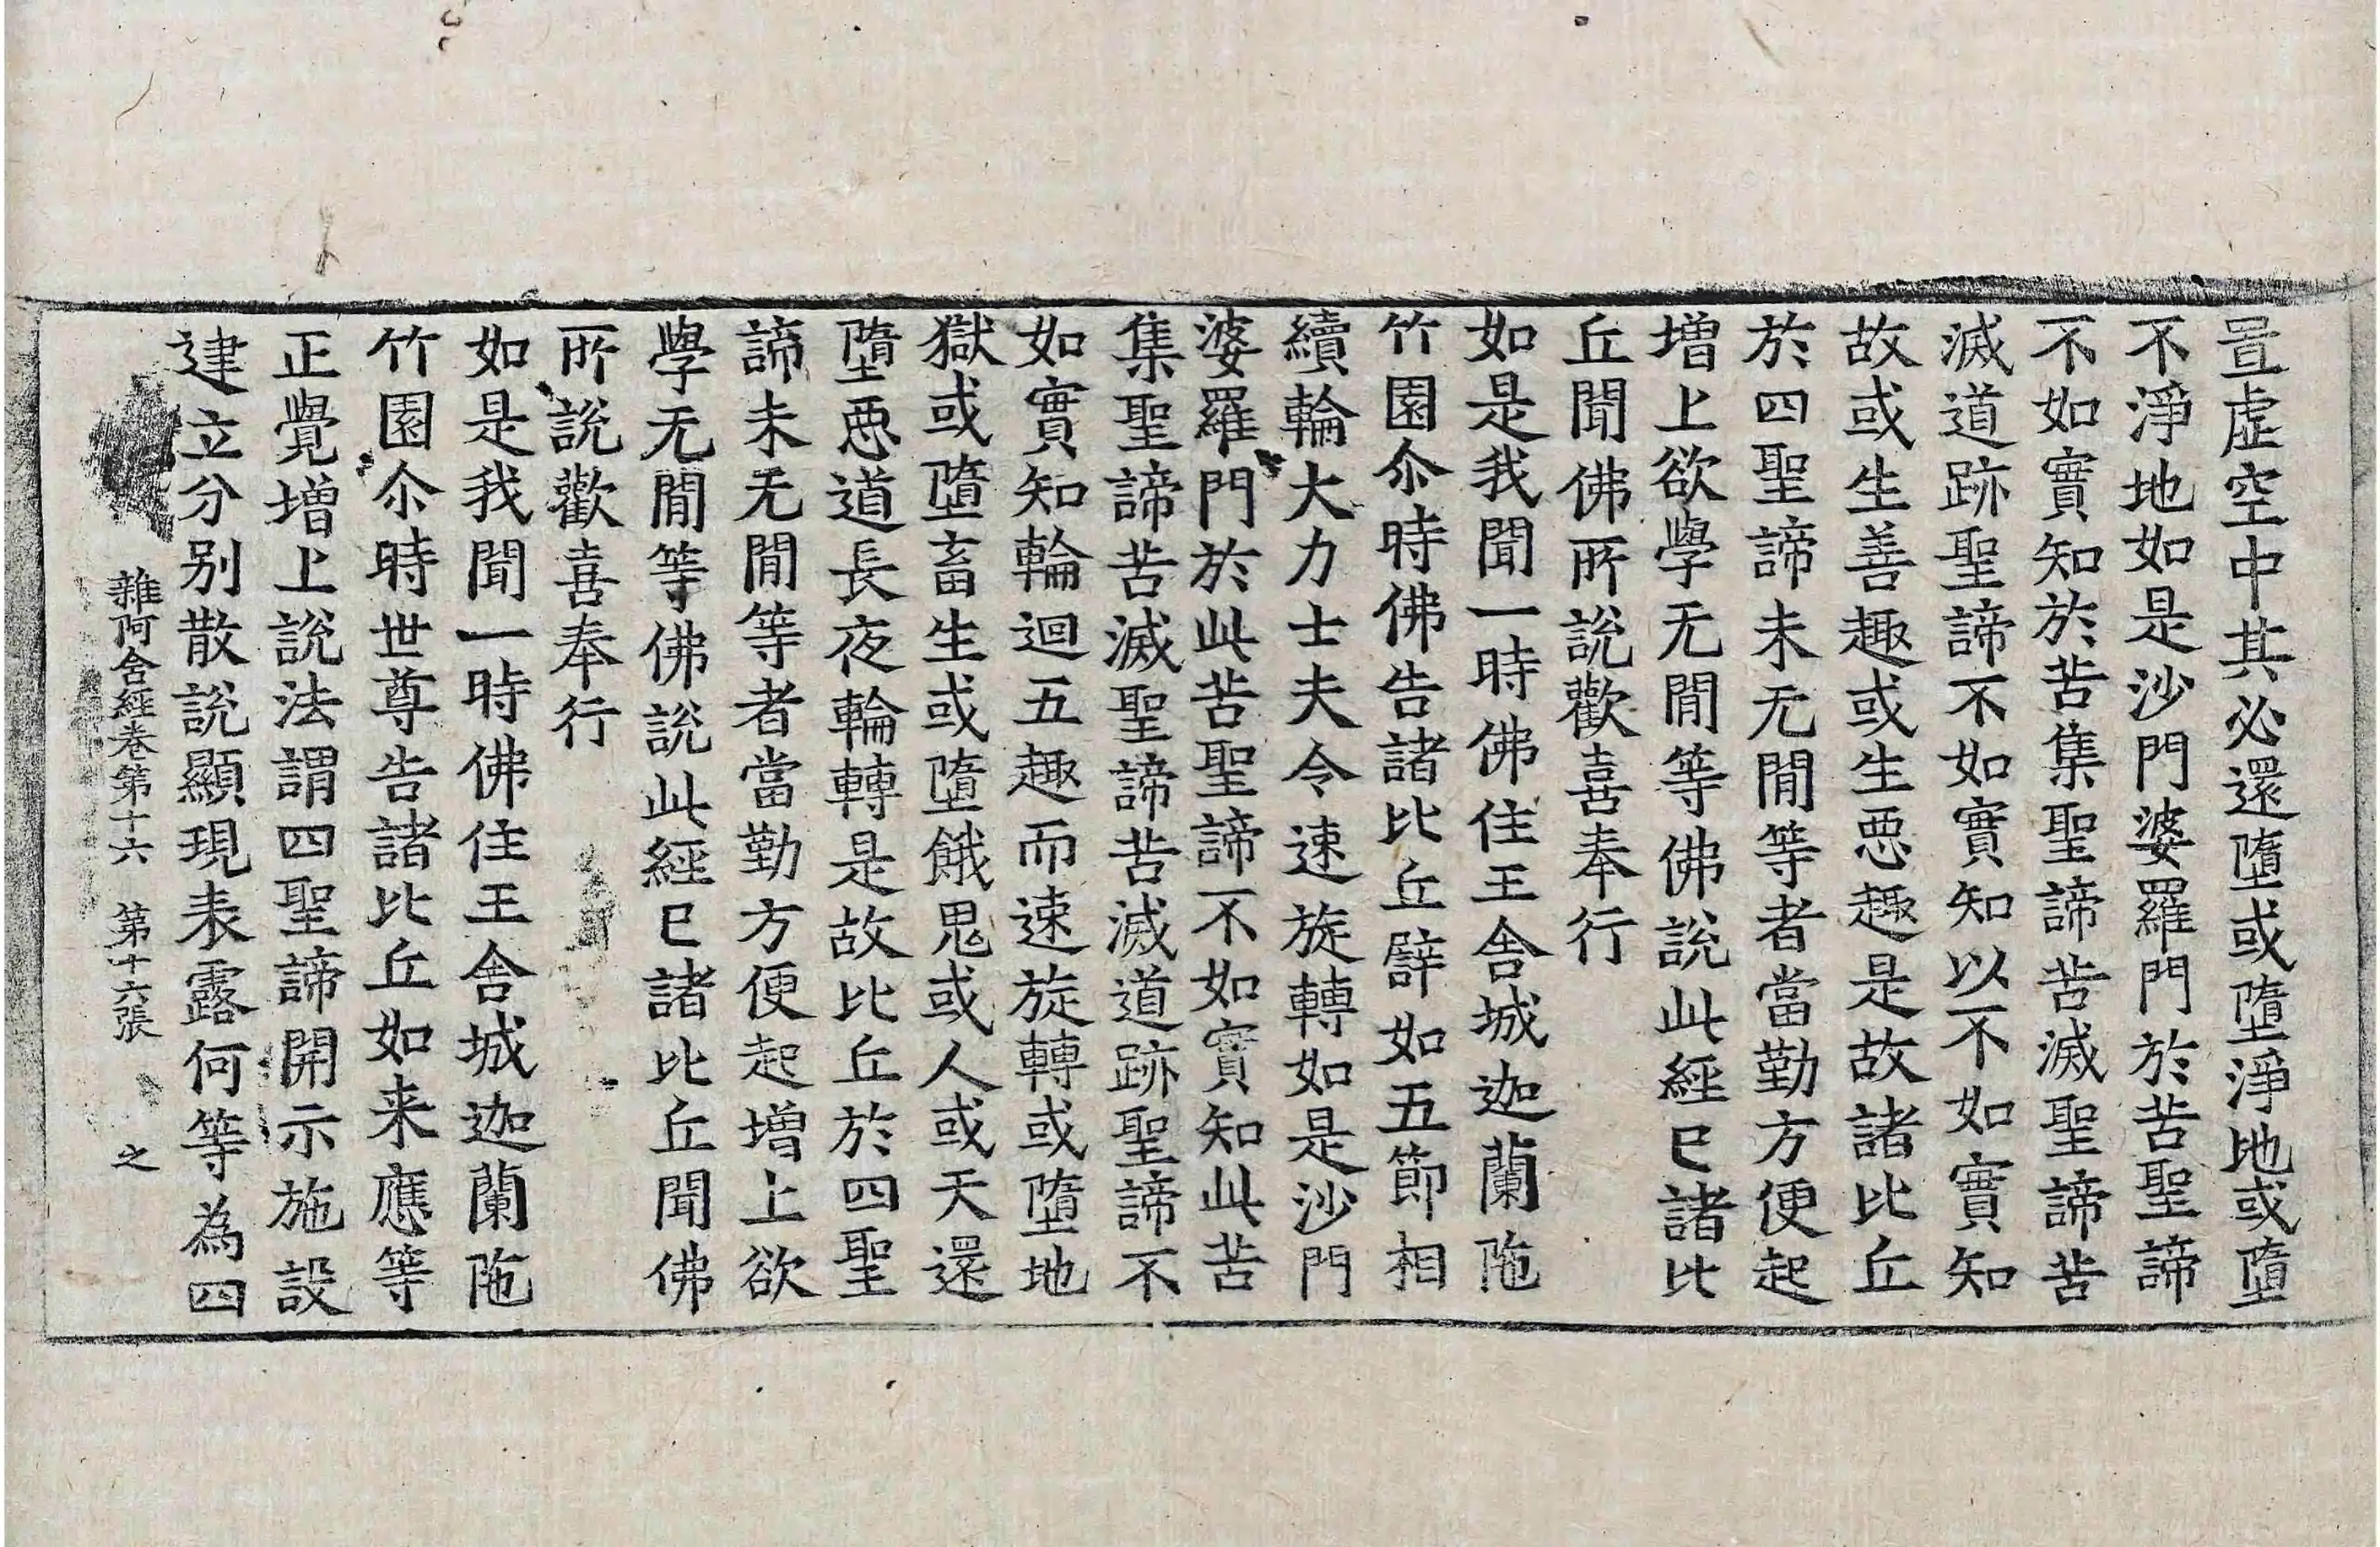 置虛空中其必還墮或墮淨地或墮
不淨地如是沙門婆羅門於苦聖諦
不如實知於苦集聖諦苦滅聖諦苦
滅道跡聖諦不如實知以不如實知
故或生善趣或生惡趣是故諸比丘
於四聖諦未无閒等者當勤方便起
增上欲學无閒等佛說此經已諸比
丘聞佛所說歡喜奉行
如是我聞一時佛住王舍城迦蘭陁
竹園尒時佛告諸比丘譬如五節相
續輪大力士夫令速旋轉如是沙門
婆羅門於此苦聖諦不如實知此苦
集聖諦苦滅聖諦苦滅道跡聖諦不
如實知輪迴五趣而速旋轉或墮地
獄或墮畜生或墮餓鬼或人或天還
墮惡道長夜輪轉是故比丘於四聖
諦未无閒等者當勤方便起增上欲
學无閒等佛說此經已諸比丘聞佛
所說歡喜奉行
如是我聞一時佛住王舍城迦蘭陁
竹園尒時世尊告諸比丘如来應等
正覺增上說法謂四聖諦開示施設
建立分别散說顯現表露何等為四
雜阿含經卷第十六 第十六張 之